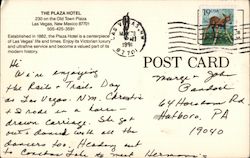 THE PLAZA HOTEL
230 on the Old Town Plaza
Las Vegas, New Mexico 87701
505-425-3591
Established in 1882, the Plaza Hotel is a centerpiece
of Las Vegas' life and times. Enjoy its Victorian luxury
and ultrafine service and become a valued part of its
modern history.
19
USA
1991
87701
POST CARD
Hi
We're enjoying
the Rails + Trails Day
at Las Vegas, NM. Christi
+ I rode in a
drawn carriage. She got
out + danced with all the
dancers too. Heading out
to
Marge + John
64 Horsham Rd
Hatboro, PA
19040